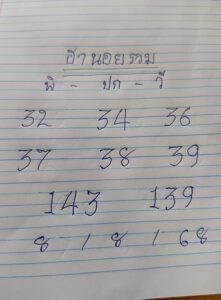 อำนอยรวม
พิ - ปก - วี
32 34 36
37 38 39
143 139
8 1 8 1 68